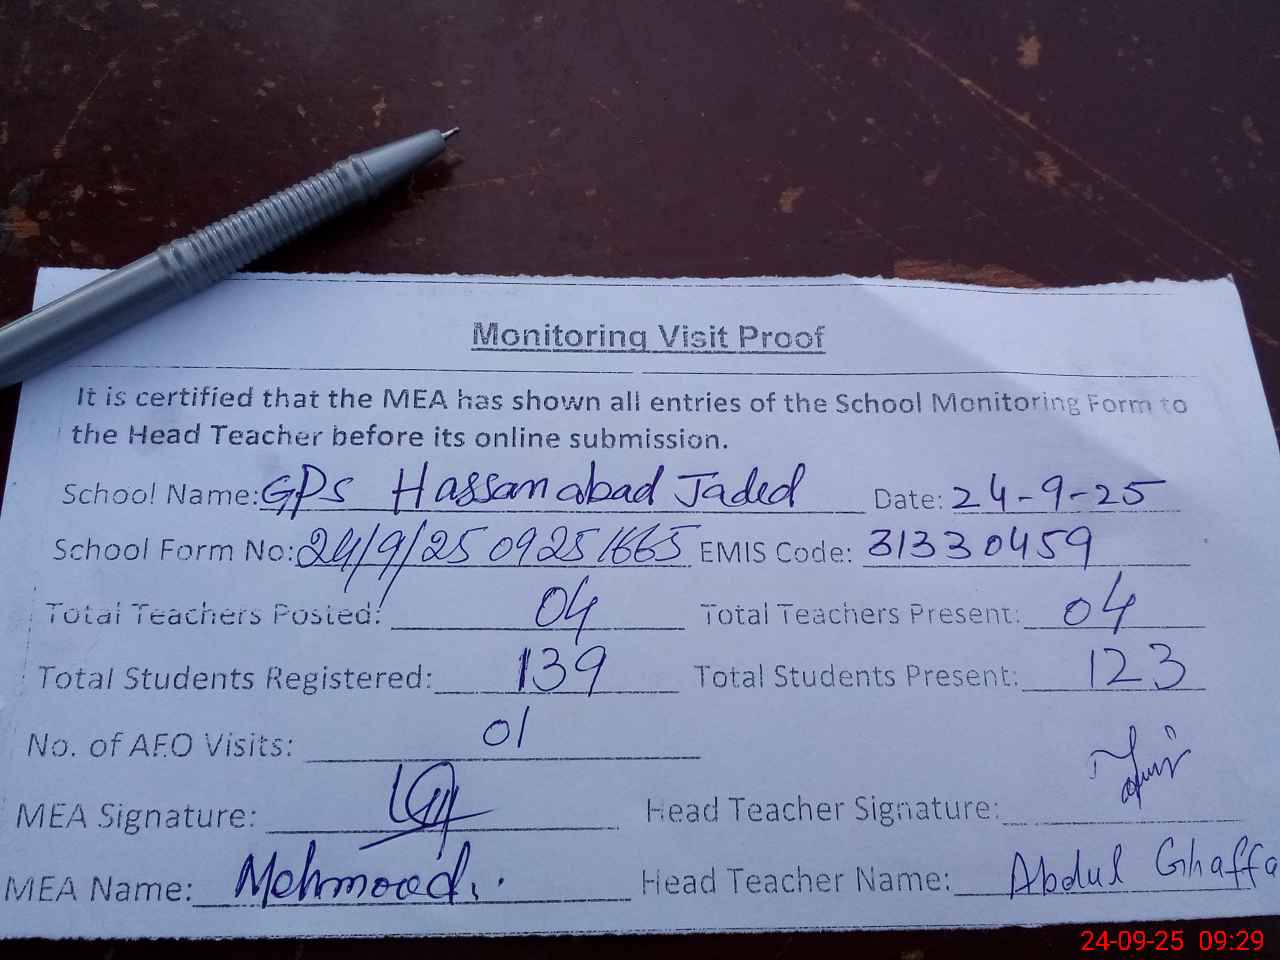 Monitoring Visit Proof
It is certified that the MEA has shown all entries of the School Monitoring Form to
the Head Teacher before its online submission.
School Name: GPS Hassanabad Jaded Date: 24-9-25
School Form No: 24/9/25 09251665 EMIS Code: 31330459
Total Teachers Posted: 04 Total Teachers Present: 04
Total Students Registered: 139 Total Students Present: 123
No. of AEO Visits: 01
MEA Signature: Head Teacher Signature:
MEA Name: Mehmood. Head Teacher Name: Abdul Ghaffa
24-09-25 09:29